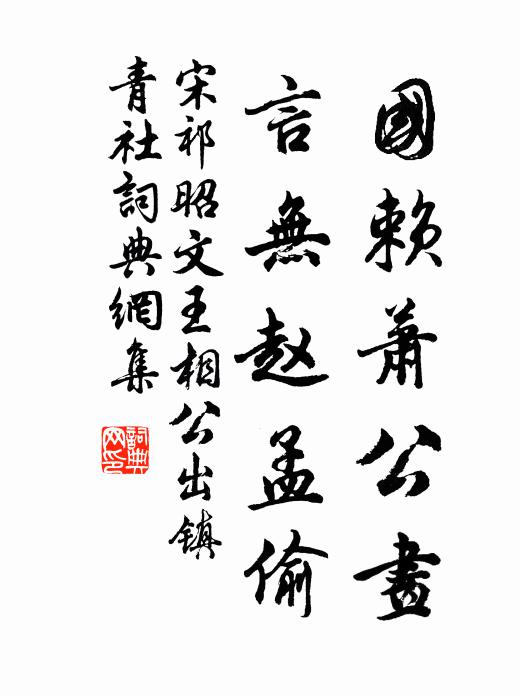 國賴蕭公畫
言無赵孟偷
宋祁昭文王相公出鎮
青社詞典網集
詞典
网印